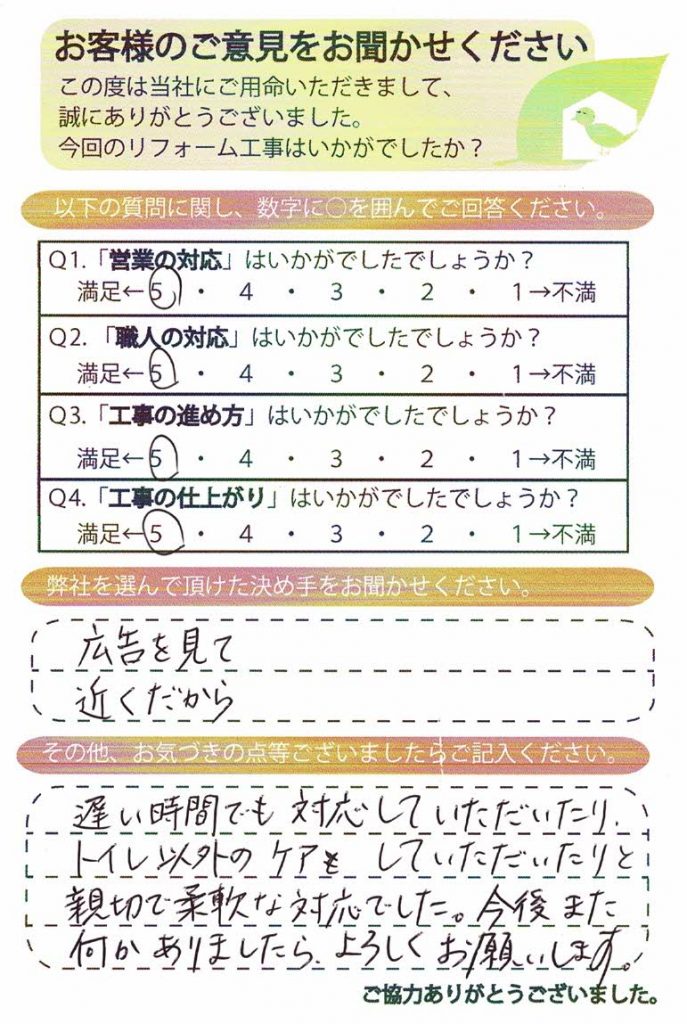 お客様のご意見をお聞かせください
この度は当社にご用命いただきまして、
誠にありがとうございました。
今回のリフォーム工事はいかがでしたか？
以下の質問に関し、数字に○を囲んでご回答ください。
Q1.「営業の対応」はいかがでしたでしょうか？
満足←5 ・ 4 ・ 3 ・ 2 ・ 1→不満
Q2.「職人の対応」はいかがでしたでしょうか？
満足←5 ・ 4 ・ 3 ・ 2 ・ 1→不満
Q3.「工事の進め方」はいかがでしたでしょうか？
満足←5 ・ 4 ・ 3 ・ 2 ・ 1→不満
Q4.「工事の仕上がり」はいかがでしたでしょうか？
満足←5 ・ 4 ・ 3 ・ 2 ・ 1→不満
弊社を選んで頂けた決め手をお聞かせください。
広告を見て
近くだから
その他、お気づきの点等ございましたらご記入ください。
遅い時間でも対応していただいたり、
トイレ以外のケアもしていただいたりと
親切で柔軟な対応でした。今後また
何かありましたら、よろしくお願いします。
ご協力ありがとうございました。